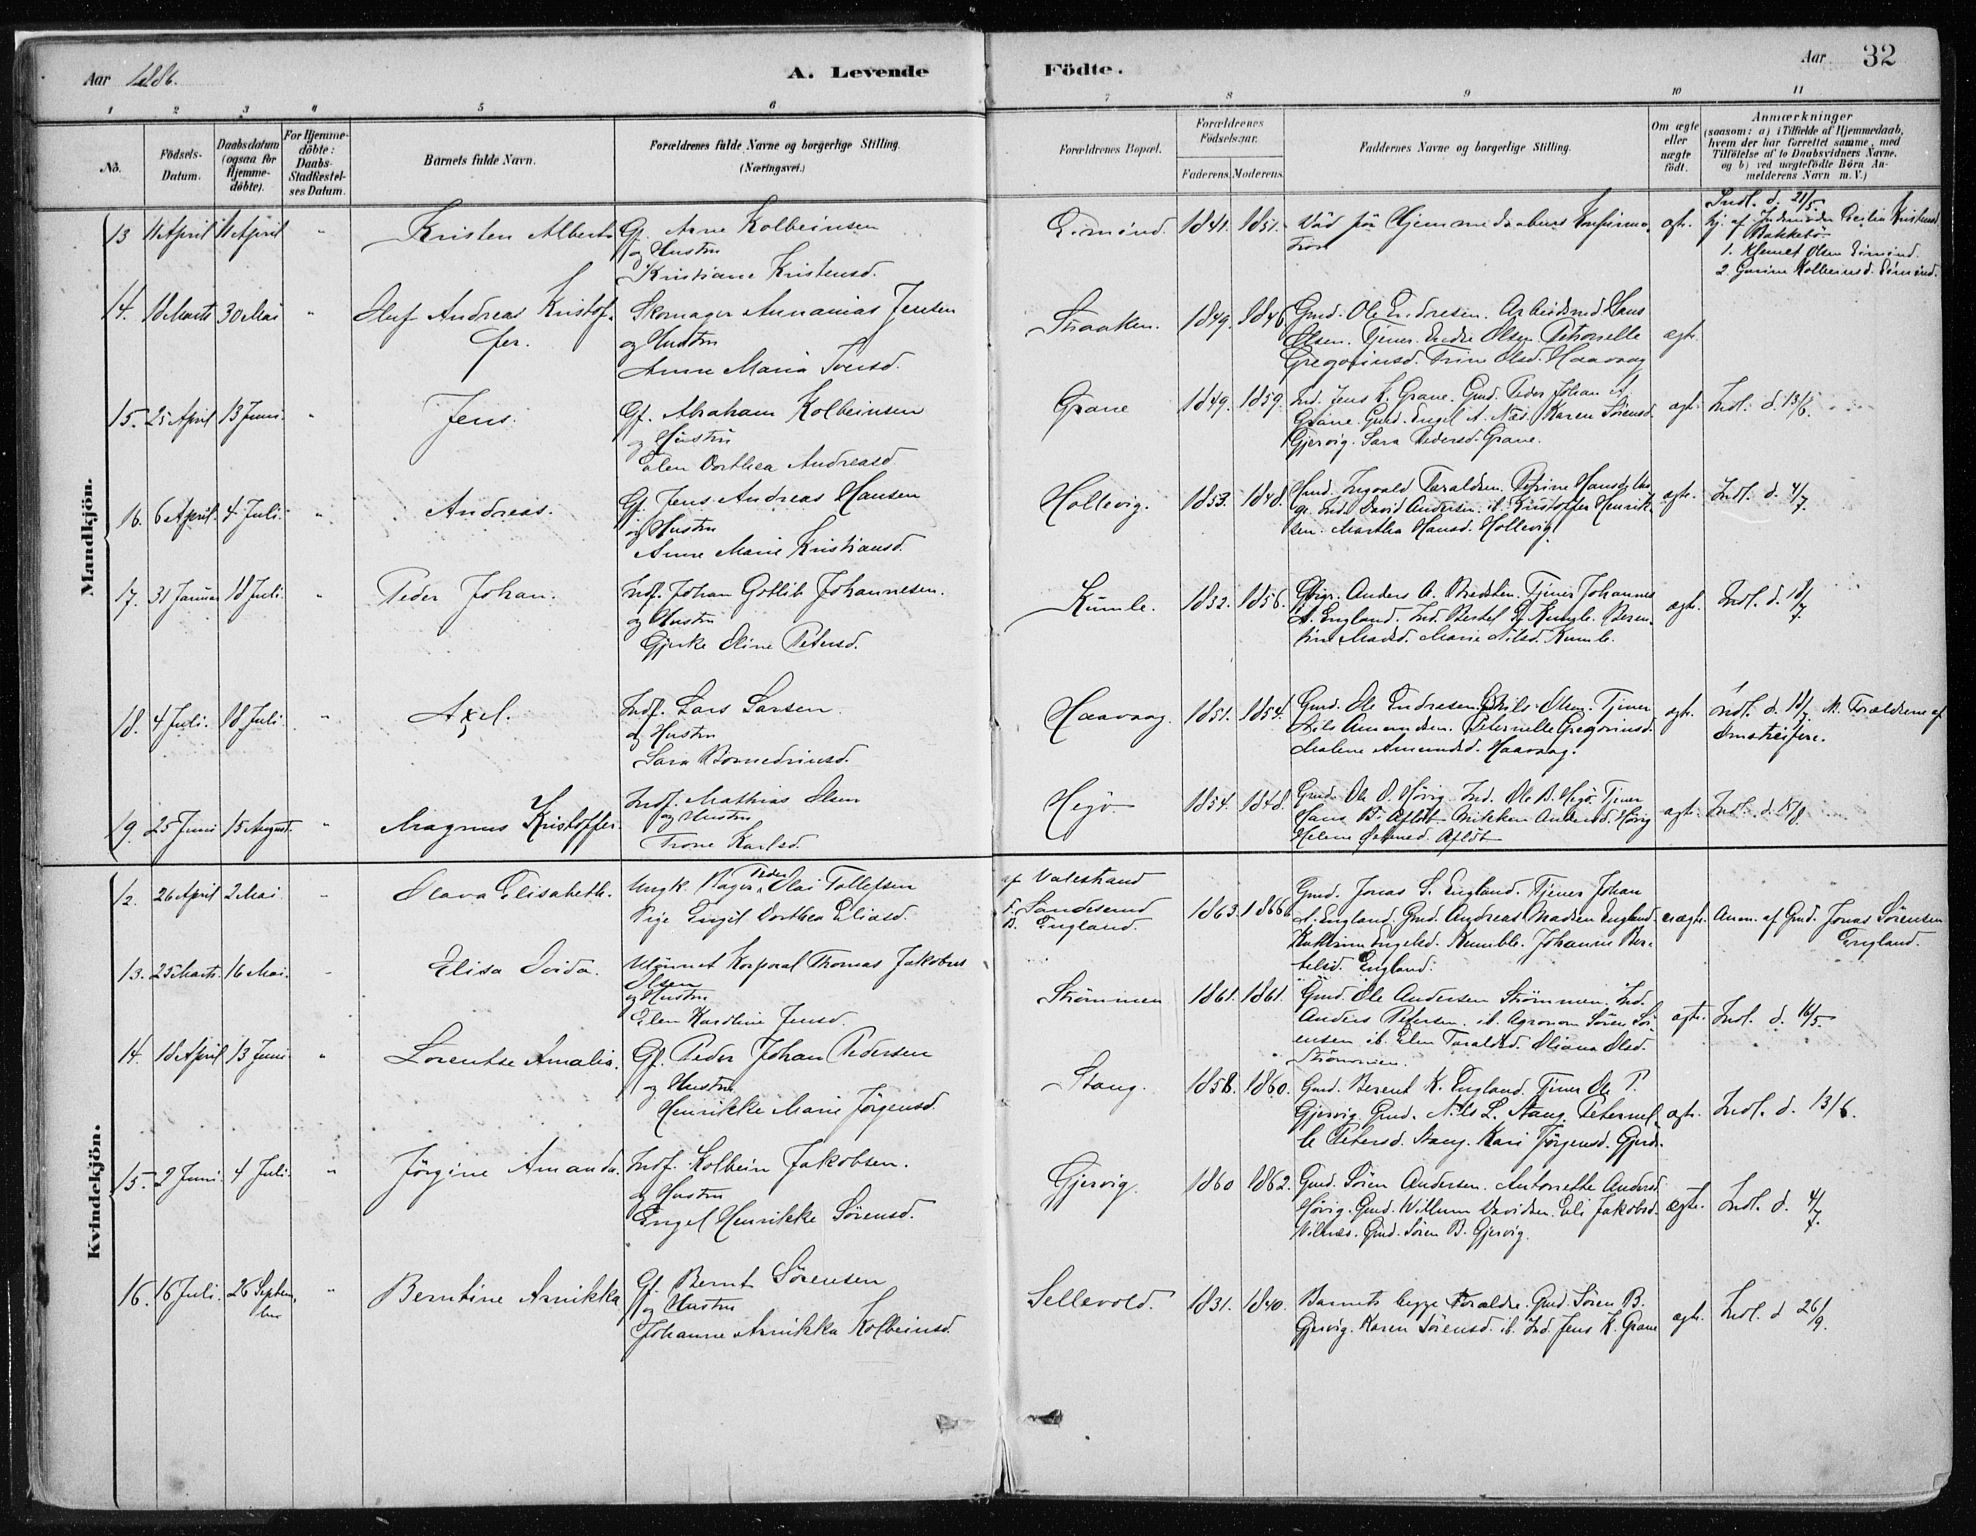 Aar 1886.
A. Levende
Födte.
Aar 32
1 2 3 4 5 6 7 8 9 10 11
No.
Födsels-Datum.
Daabsdatum (ogsaa for Hjemme-döbte).
For Hjemme-döbte: Daabs-Stadfæstel-ses Datum.
Barnets fulde Navn.
Forældrenes fulde Navne og borgerlige Stilling.
(Næringsvei.)
Forældrenes Bopæl.
Forældrenes Födselsaar.
Faderens. Moderens.
Faddernes Navne og borgerlige Stilling.
Om ægte eller uægte födt.
Anmærkninger
(saasom: a) i Tilfælde af Hjemmedaab, hvem der har forrettet samme, med Tilföielse af to Daabsvidners Navne. og b) ved uægtefödte Börn Anmelderens Navn m. V.)
Mandkjön.
13 11 April 11 April " Kristen Albert Gf. Arne Kolbeinsen
og Hustru
Kristiane Kristensd.
1841. 1851. ægte. Indl. d. 21/5.
1. Klemet Olsen
2. Gurine Kolbeinsd.
14. 18 Marts 30 Mai " Oluf Andreas Kristof-
fer.
Skomager Annanias Jensen
og Hustru
Anne Maria Iversd.
Straaken. 1849. 1846. Gmd. Ole Endresen. Arbeidsmd Hans
Olsen. Tjener Endre Olsen. Petronelle
Gregoriusd. Trine Olsd. Haavaag
ægte.
15. 25 April 13 Juni. " Jens. Gf. Abraham Kolbeinsen
og Hustru
Elen Dorthea Andreasd.
Grane 1849. 1859. Ind. Jens K. Grane. Gmd. Peder Johan A.
Grane. Gmd. Engel A. Næs. Karen Sørensd.
Gjervig. Sara Pedersd. Grane.
ægte. Indl. d. 13/6.
16. 6 April. 4 Juli. " Andreas. Gf. Jens Andreas Hansen
og Hustru
Anne Marie Kristiansd.
Hollevig. 1853. 1848. Gmd. Ingvald Taraldsen. Petrine Hansd.
Ind. David Andersen. ib. Kristoffer Henrik-
sen. Martha Hansd. Hollevig.
ægte. Indl. d. 4/7
17. 31 Januar 18 Juli. " Peder Johan. Indf. Johan Gotlib Johannesen.
og Hustru
Gjerke Oline Petersd.
Kumle. 1852. 1856. Anders A. Bredsten. Tjener Johannes
A. England. Ind. Bertel P. Kumle. Beren-
tine Madsd. Marie Nilsd. Kumle.
ægte. Indl. d. 18/7
18. 4 Juli. 18 Juli. " Axel. Indf. Lars Larsen
og Hustru
Sara
Haavaag. 1851. 1854. Gmd. Ole Endresen. Nils Olsen. Tjener
Nils Amundsen. Peternelle Gregoriusd.
Malene Amundsd. Haavaag.
ægte. Indl. d. 18/7 N. Forældrene af
Omstreifere.
19. 25 Juni 15 August. " Magnus Kristoffer. Indf. Mathias Olsen
og Hustru
Trone Karlsd.
Higö 1854. 1848. Gmd. Ole O. Hövig. Ind. Ole B. Higö. Tjener
Hans B. Afldt. Anikken Andersd. Hövig
Helene Afldt
ægte. Indl. d. 15/8.
Kvindekjön.
12. 26 April 2 Mai " Olava Elisabeth. Ungk. Bager Peder Olai Tollefsen
Pige Engel Dorthea Eliasd.
f. Vatestrand
F. Sandesund
B. England.
1863. 1866. Gmd. Jonas S. England. Tjener Johan
A. England. Gmd. Andreas Madsen England.
Kathrine Engelsd. Kumble. Johanne Ber-
telsd. England.
uægte. Anm. af Gmd. Jonas Sörensen
England.
13. 25 Marts. 16 Mai. " Elisa Ovida. Utlønnet Korporal Thomas Jakobus
Olsen
og Hustru
Elen Karoline Jensd.
Strömmen 1861. 1861. Gmd. Ole Andersen Strömmen. Ind.
Anders Petersen. ib. Agronom Sören Sör-
ensen ib. Elen Taraldsd. Oliana Olsd.
Strömmen.
ægte. Indl. d. 16/5.
14. 18 April 13 Juni " Lorentse Amalia. Gf. Peder Johan Pedersen
og Hustru
Henrikke Marie Jörgensd.
Stang. 1858. 1860. Gmd. Berent K. England. Tjener Ole P.
Gjervig. Gmd. Nils L. Stang. Peternel-
le Petersd. Stang. Kari Jörgensd. Gjerv.
ægte. Indl. d. 13/6.
15. 2 Juni. 4 Juli. " Jörgine Amanda. Indf. Kolbein Jakobsen.
og Hustru
Engel Henrikke Sörensd.
Gjervig. 1860 1862. Gmd. Sören Andersen. Antonette Andersd
Hövig. Gmd. Willum Davidsen. Eli Jakobsd.
Vilnæs. Gmd. Sören B. Gjervig.
ægte. Indl. d. 4/7.
16. 16 Juli. 26 Septem-
ber
" Berntine Annikka Gf. Bernt Sörensen
og Hustru
Johanne Annikka Kolbeinsd.
Sellevold. 1831. 1840. Barnets begge Forældre. Gmd. Sören B.
Gjervig. Karen Sörensd. ib. Ind. Jens K. Grane
ægte. Indl. d. 26/9.